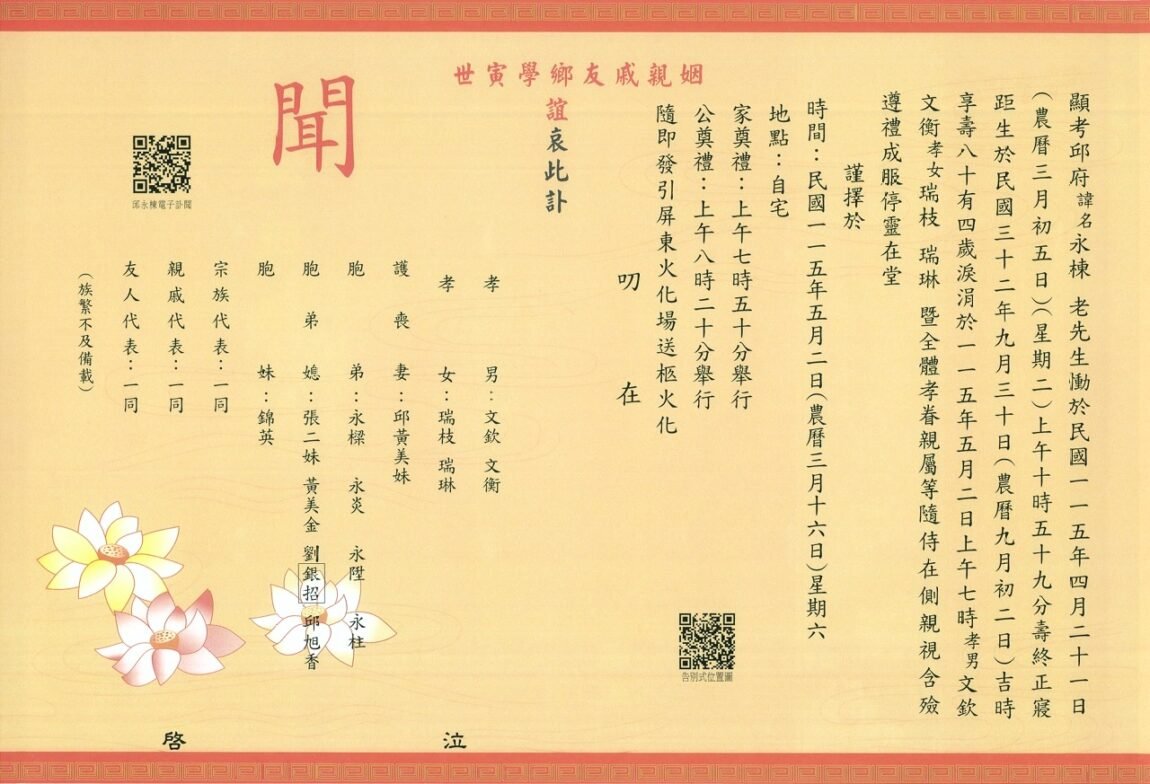 顯考邱府諱名永棟 老先生慟於民國一一五年四月二十一日
(農曆三月初五日)(星期二)上午十時五十九分壽終正寢
距生於民國三十二年九月三十日(農曆九月初二日)吉時
享壽八十有四歲淚涓於一一五年五月二日上午七時孝男文欽
文衡孝女瑞枝 瑞琳 暨全體孝眷親屬等隨侍在側親視含殮
遵禮成服停靈在堂
謹擇於
時間:民國一一五年五月二日(農曆三月十六日)星期六
地點:自宅
家奠禮:上午七時五十分舉行
公奠禮:上午八時二十分舉行
隨即發引屏東火化場送柩火化
叨在
姻親戚友鄉學寅世
誼哀此訃
聞
孝男:文欽 文衡
孝女:瑞枝 瑞琳
護喪妻:邱黃美妹
胞弟:永樑 永炎 永陞 永柱
胞弟媳:張二妹 黃美金 劉銀招 邱旭香
胞妹:錦英
宗族代表:一同
親戚代表:一同
友人代表:一同
(族繁不及備載)
泣啓
邱永棟電子訃聞
告別式位置圖